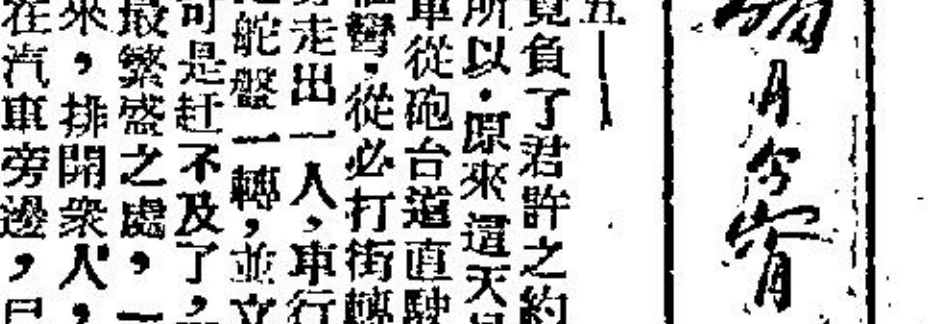 月今宵
五——
負了君許之約
所以,原來這天
車從砲台道直駛
彎,從必打街轉
走出一人,車行
舵盤一轉,並
可是赶不及了,
最繁盛之處,一
來,排開衆人,
在汽車旁邊,